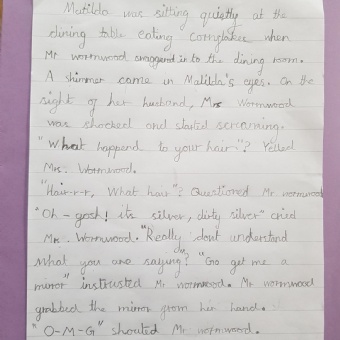 Matilda was sitting quietly at the
dining table eating Cornflakes when
Mr wormwood swaggered in to the dining room.
A shimmer came in Matilda's eyes. On the
sight of her husband, Mrs Wormwood
was shocked and started screaming.
"What happend to your hair"? Yelled
Mrs. Wormwood.
"Hair-r-r, What hair"? Questioned Mr wormwood
"Oh-gosh! its silver, dirty silver" cried
Mrs. Wormwood. "Really I dont understand
what you are saying?" "Go get me a
mirror" instructed Mr wormwood. Mr wormwood
grabbed the mirror from her hand.
"O-M-G" shouted Mr wormwood.